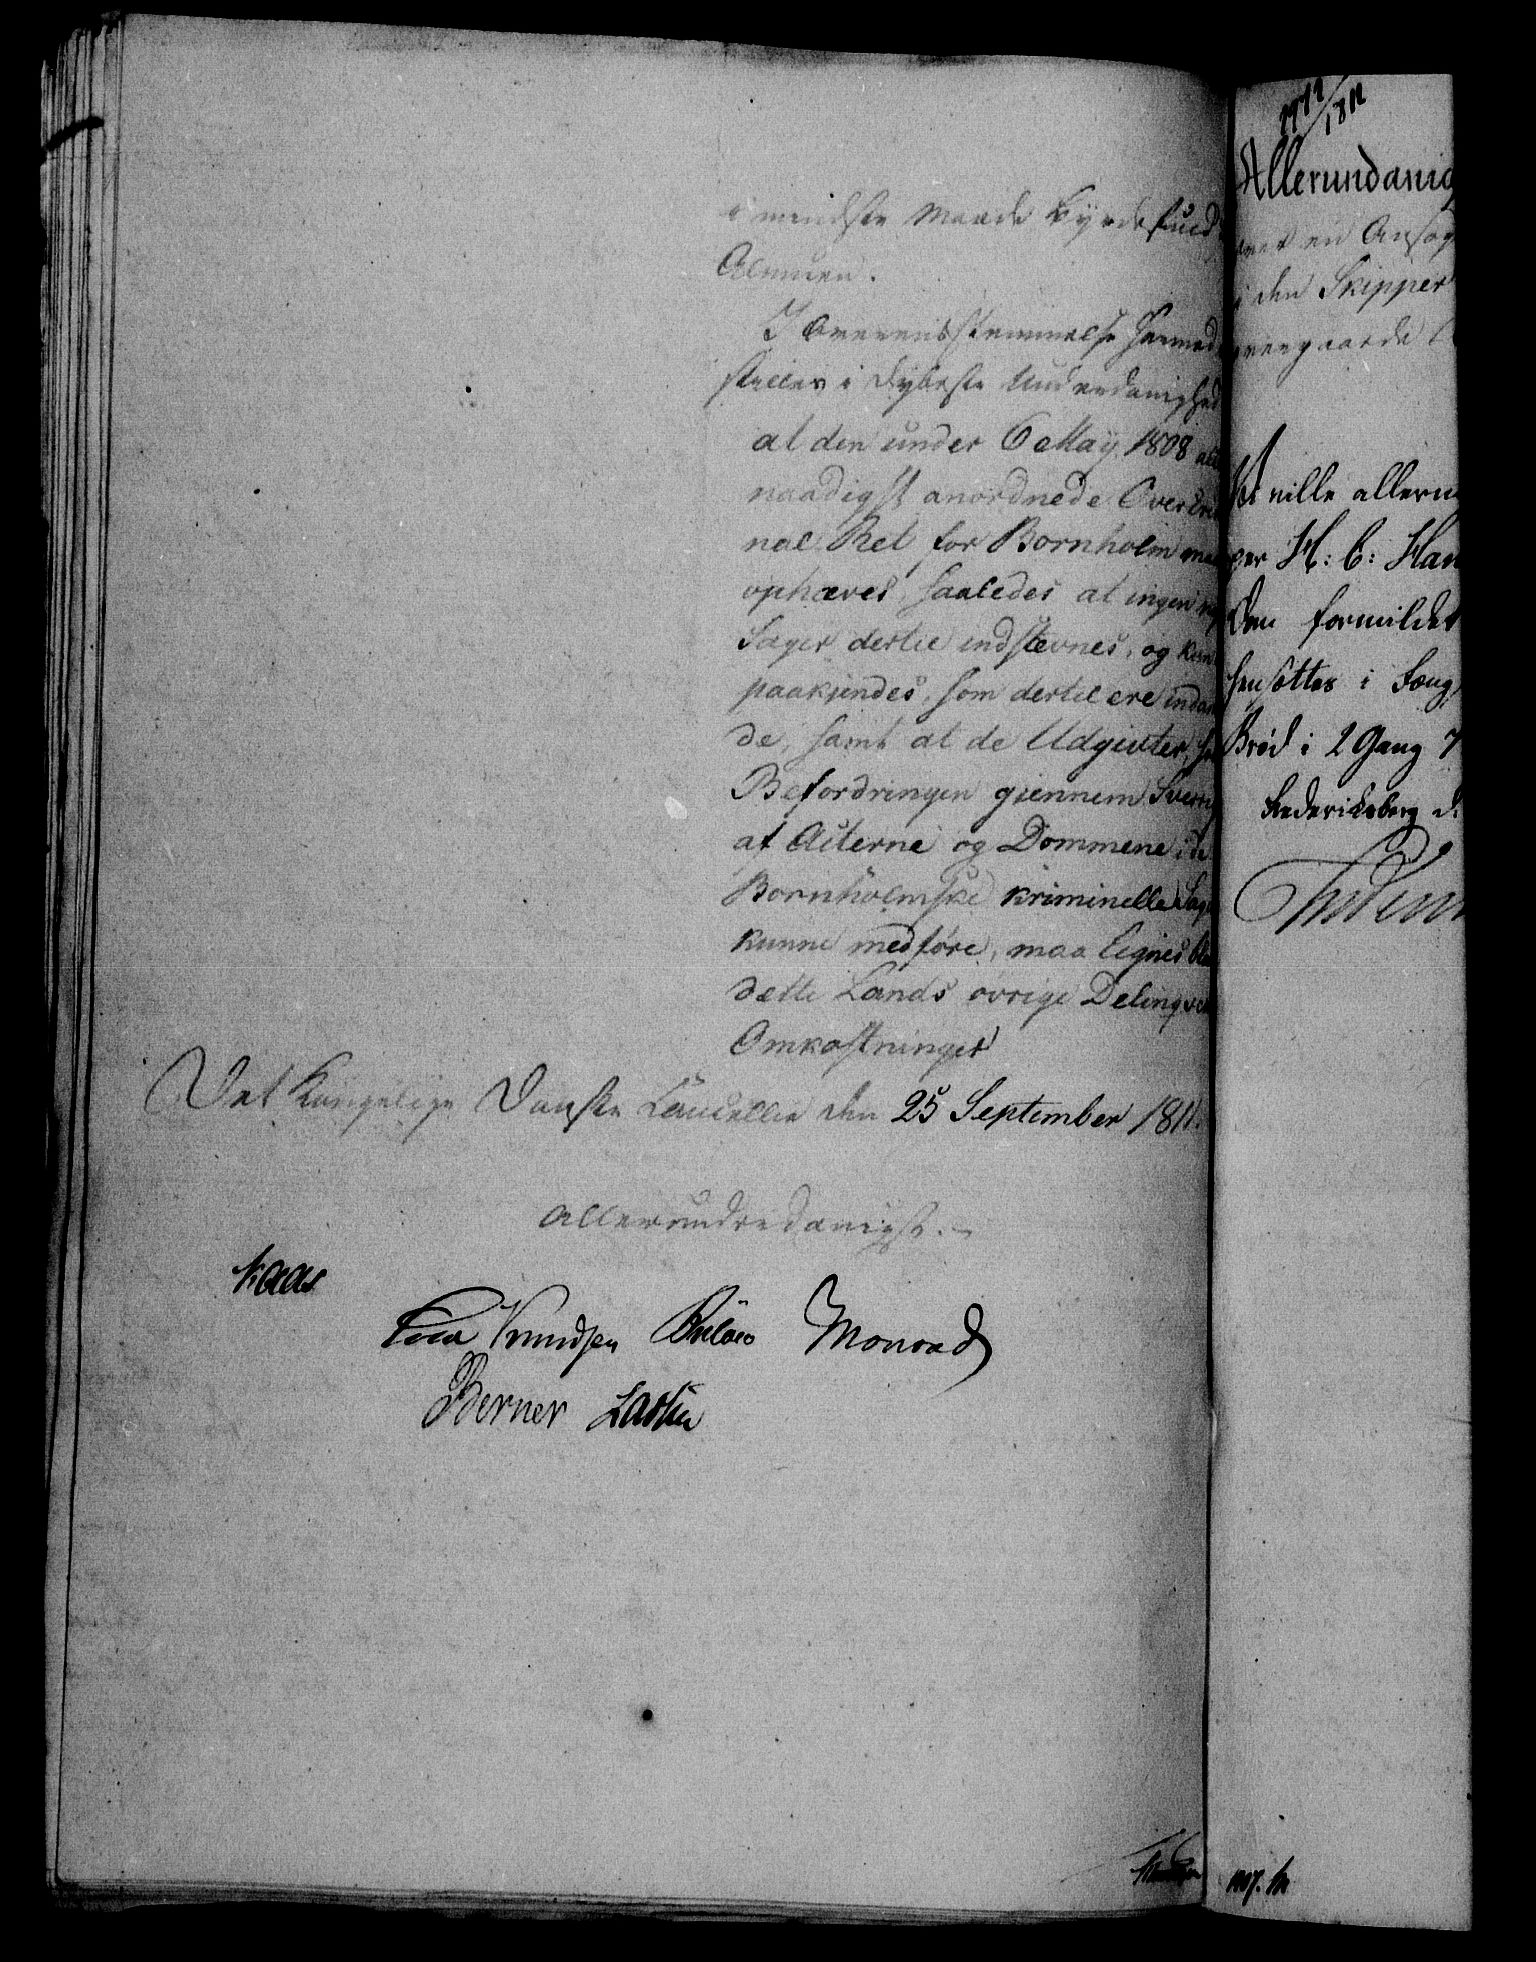 i mindste Maade byrdefuld
Almuen.
I Overeensstemmelse hermed
stilles i dybeste Underdanighed
at den under 6 May 1808 alle
naadigst anordnede Over Crimi
nal Ret for Bornholm maa
ophæves, saaledes at ingen
Sager dertil indstevnes, og kun
paakjendes, som dertil ere indan
de, samt at de Udgivter, som
Befordringen giennem Sverrig
af Acterne og Dommene i de
Bornholmske kriminelle Sager
kunne medføre, maa lignes blandt
dette Lands øvrige Delinqvent
Omkostninger
Det Kongelige Danske Cancellie den 25 September 1811.
Allerunderdanigst.
Kaas
Knudsen Bülow Monrad
Berner Lassen
1811
Allerundanig
over en Ansøg
i den Skipper
overgaarde
Vi ville allern
per H: C: Han
den formildet
hensættes i Fæng
Brød i 2 Gang 7
Frederiksberg d.
Frederik